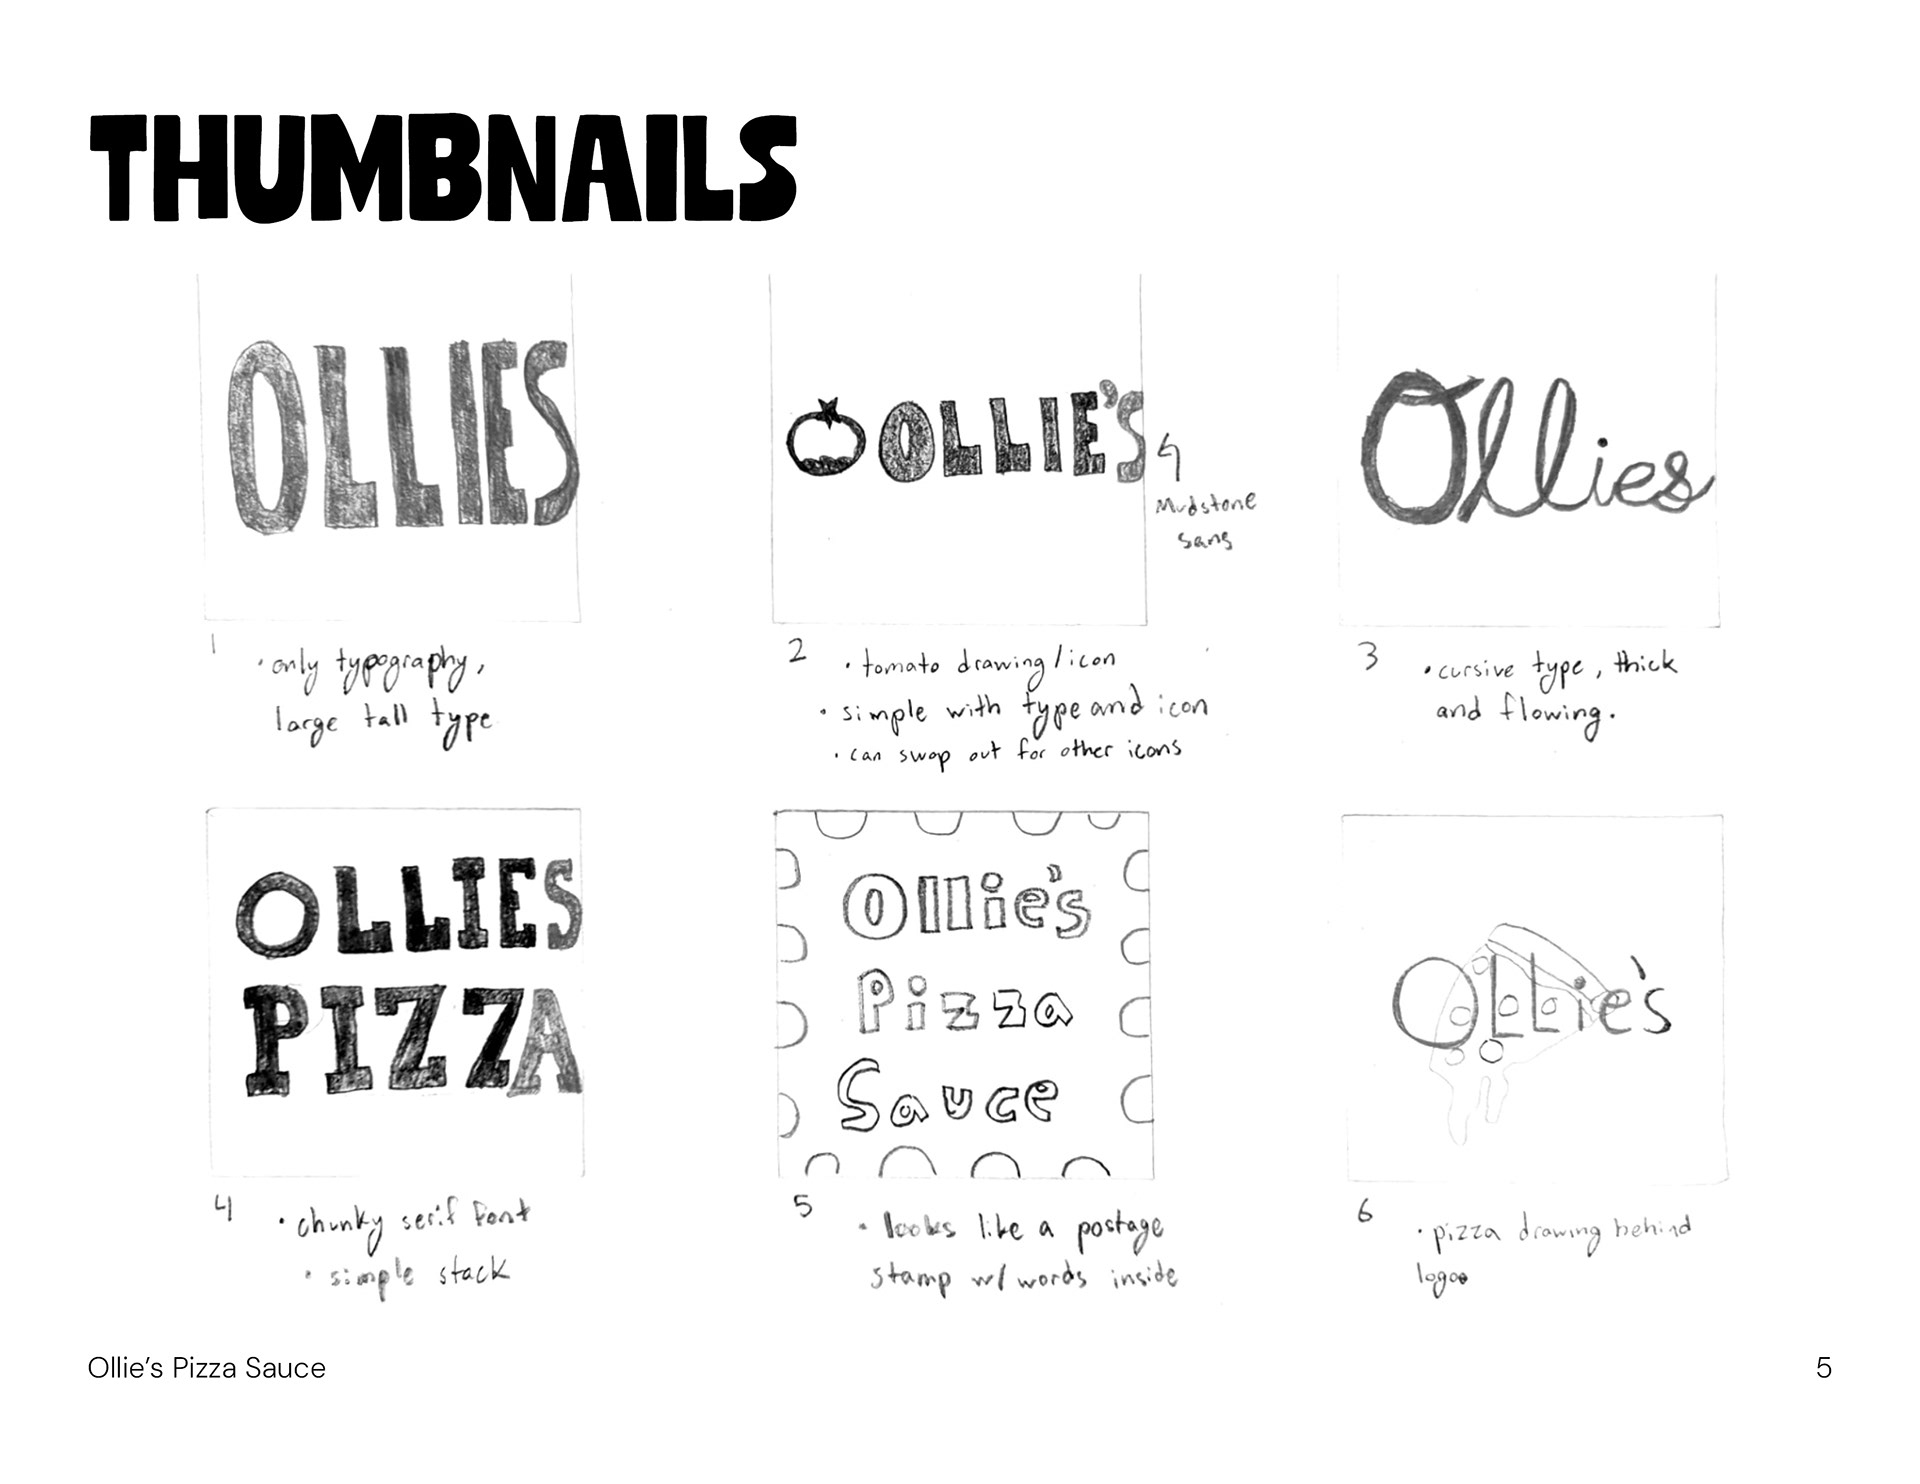 THUMBNAILS
OLLIES
1
• only typography,
large tall type
OLLIE'S
Mudstone
sans
2
• tomato drawing/icon
• simple with type and icon
• can swap out for other icons
Ollies
3
• cursive type, thick
and flowing.
OLLIES
PIZZA
4
• chunky serif font
• simple stack
Ollie's
Pizza
Sauce
5
• looks like a postage
stamp w/ words inside
OLLie's
6
• pizza drawing behind
logo
Ollie's Pizza Sauce
5